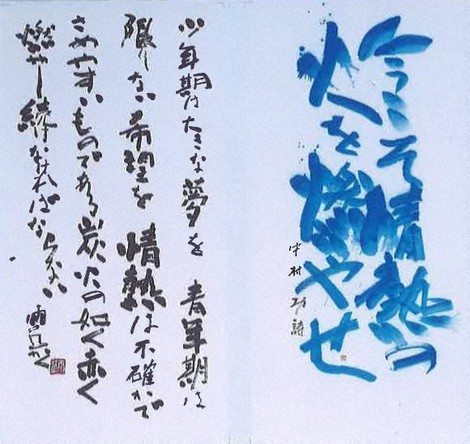 今こそ情熱の
火を燃やせ
中村 詩
少年期は大きな夢を 青年期は
限りない希望を 情熱は不確かで
さめやすいものである炭火の如く赤く
燃やし続けなければならない